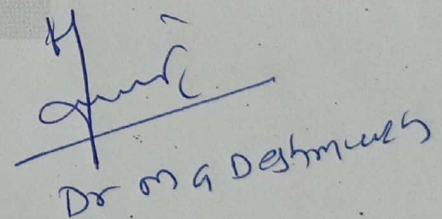 Dr M G Deshmukh